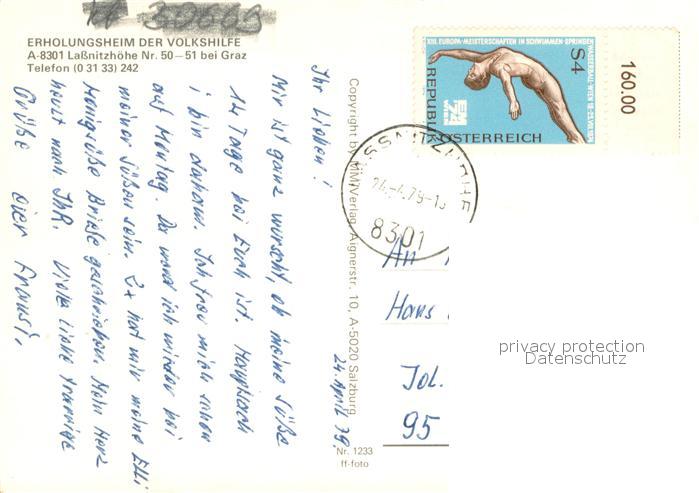 ERHOLUNGSHEIM DER VOLKSHILFE
A-8301 Laßnitzhöhe Nr. 50–51 bei Graz
Telefon (0 31 33) 242
24. April 79.
Ihr Lieben!
Mir ist ganz wurscht, ob meine Süße
14 Tage bei Euch ist. Hauptsach
i bin daham. Ich freu mich schon
auf Montag. Da werd ich wieder bei
meiner Süßen sein. 2x hat mir meine Elli
Briefe geschrieben. Mein Herz
Viele liebe
Grüße eier Franzi.
Copyright by MM-Verlag, Aignerstr. 10, A-5020 Salzburg
Nr. 1233
ff-foto
XIII. EUROPA-MEISTERSCHAFTEN IN SCHWIMMEN-SPRINGEN
WASSERBALL-WIEN 18.-25.VIII.1974
S4
EM 74
WIEN
REPUBLIK ÖSTERREICH
160.00
24.-4.79-1
8301
An
Hans
Jol.
95
privacy protection
Datenschutz